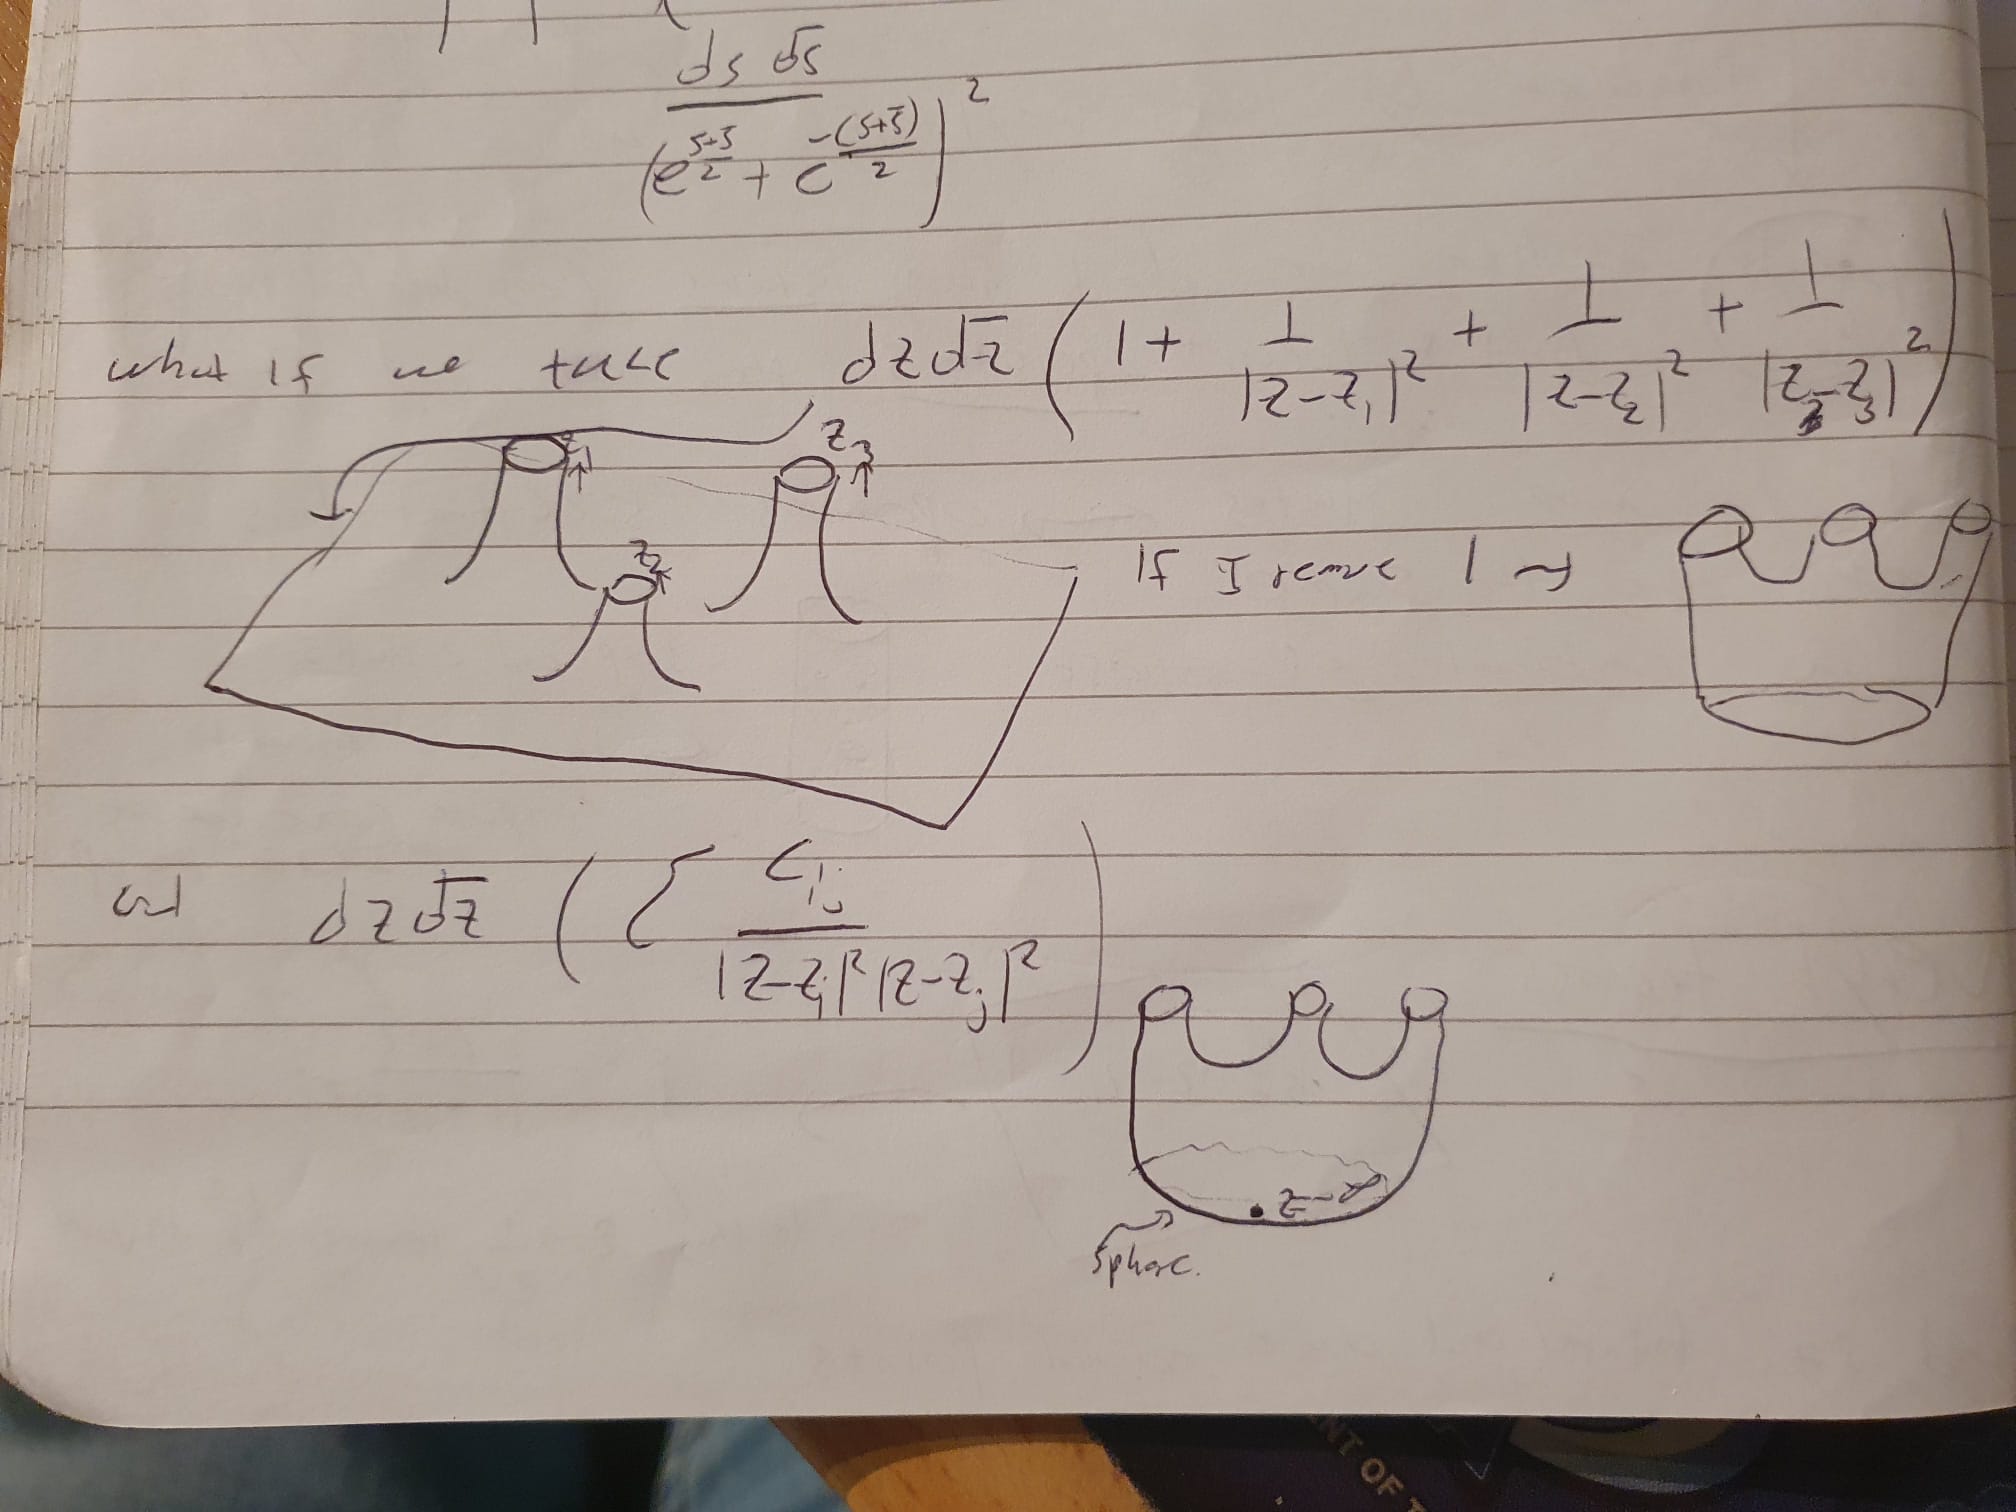 ds ds̅
(e^{(s+s̅)/2} + e^{-(s+s̅)/2})^2
what if we take dz dz̅ (1 + 1/|z-z_1|^2 + 1/|z-z_2|^2 + 1/|z-z_3|^2)
z_1 z_3
z_2
If I remve 1 →
and dz dz̅ (Σ c_{ij}/(|z-z_i|^2 |z-z_j|^2))
z=∞
sphere.
NT OF T